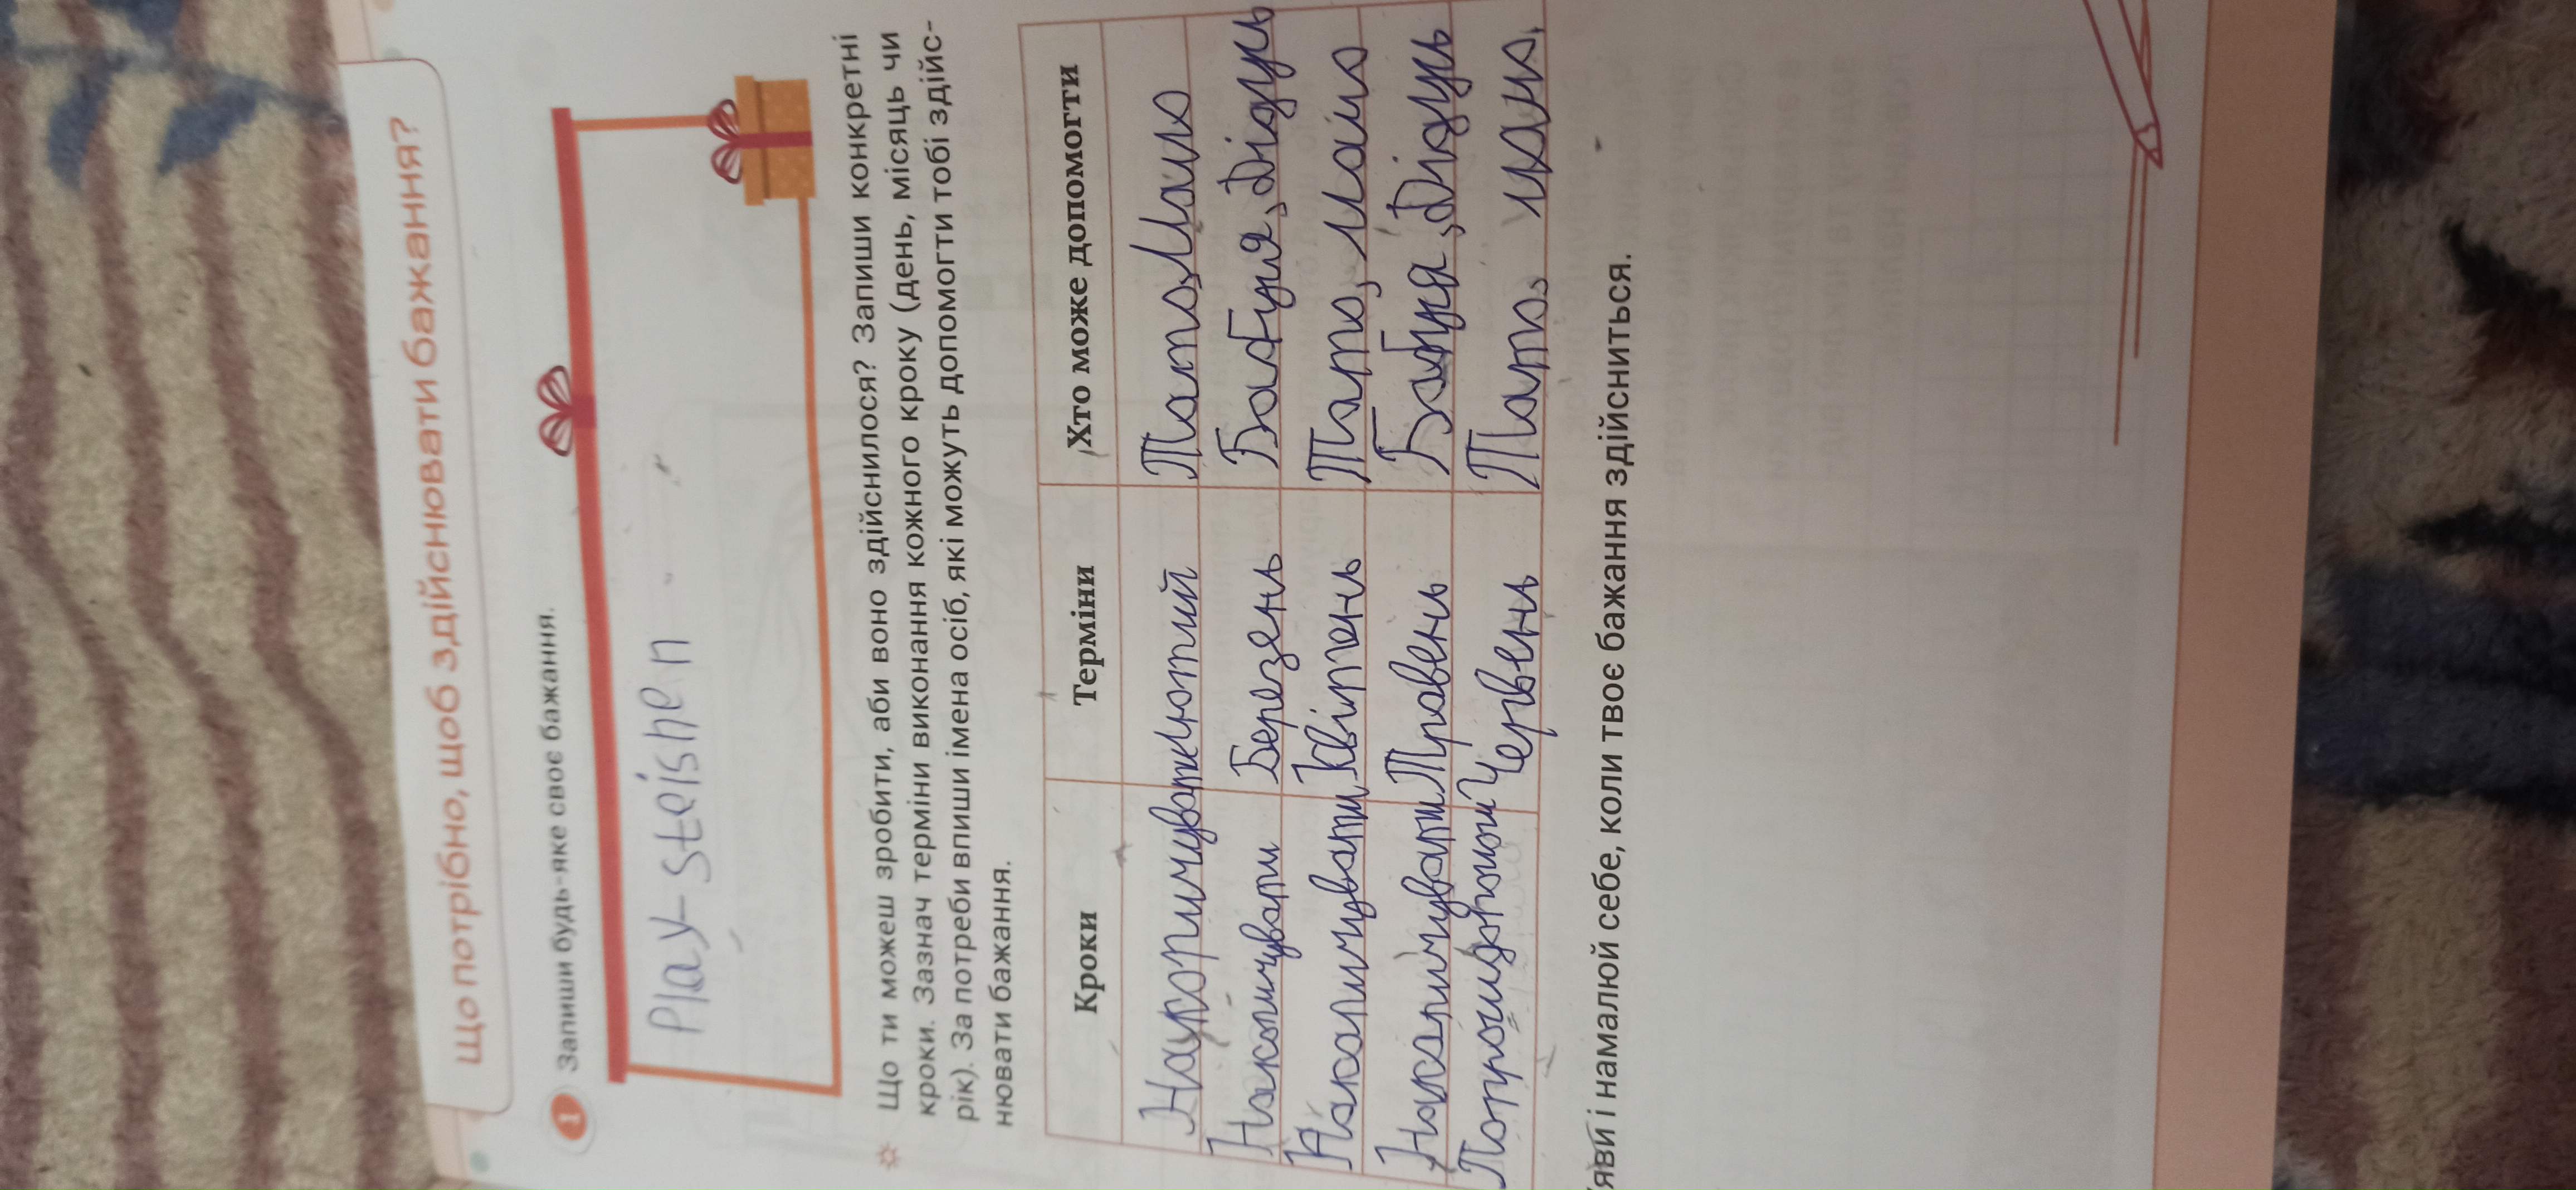 Що потрібно, щоб здійснювати бажання?
1 Запиши будь-яке своє бажання.
Play-steishen
Що ти можеш зробити, аби воно здійснилося? Запиши конкретні
кроки. Зазнач терміни виконання кожного кроку (день, місяць чи
рік). За потреби впиши імена осіб, які можуть допомогти тобі здійс-
нювати бажання.
Кроки Терміни Хто може допомогти
Накопичувати Лютий Тато, Мама
Накопичувати Березень Бабуня, Дідусь
Накопичувати Квітень Тато, мама
Накопичувати Травень Бабуня, Дідусь
Попрошу допомоги Червень Тато, мама,
яви і намалюй себе, коли твоє бажання здійсниться.